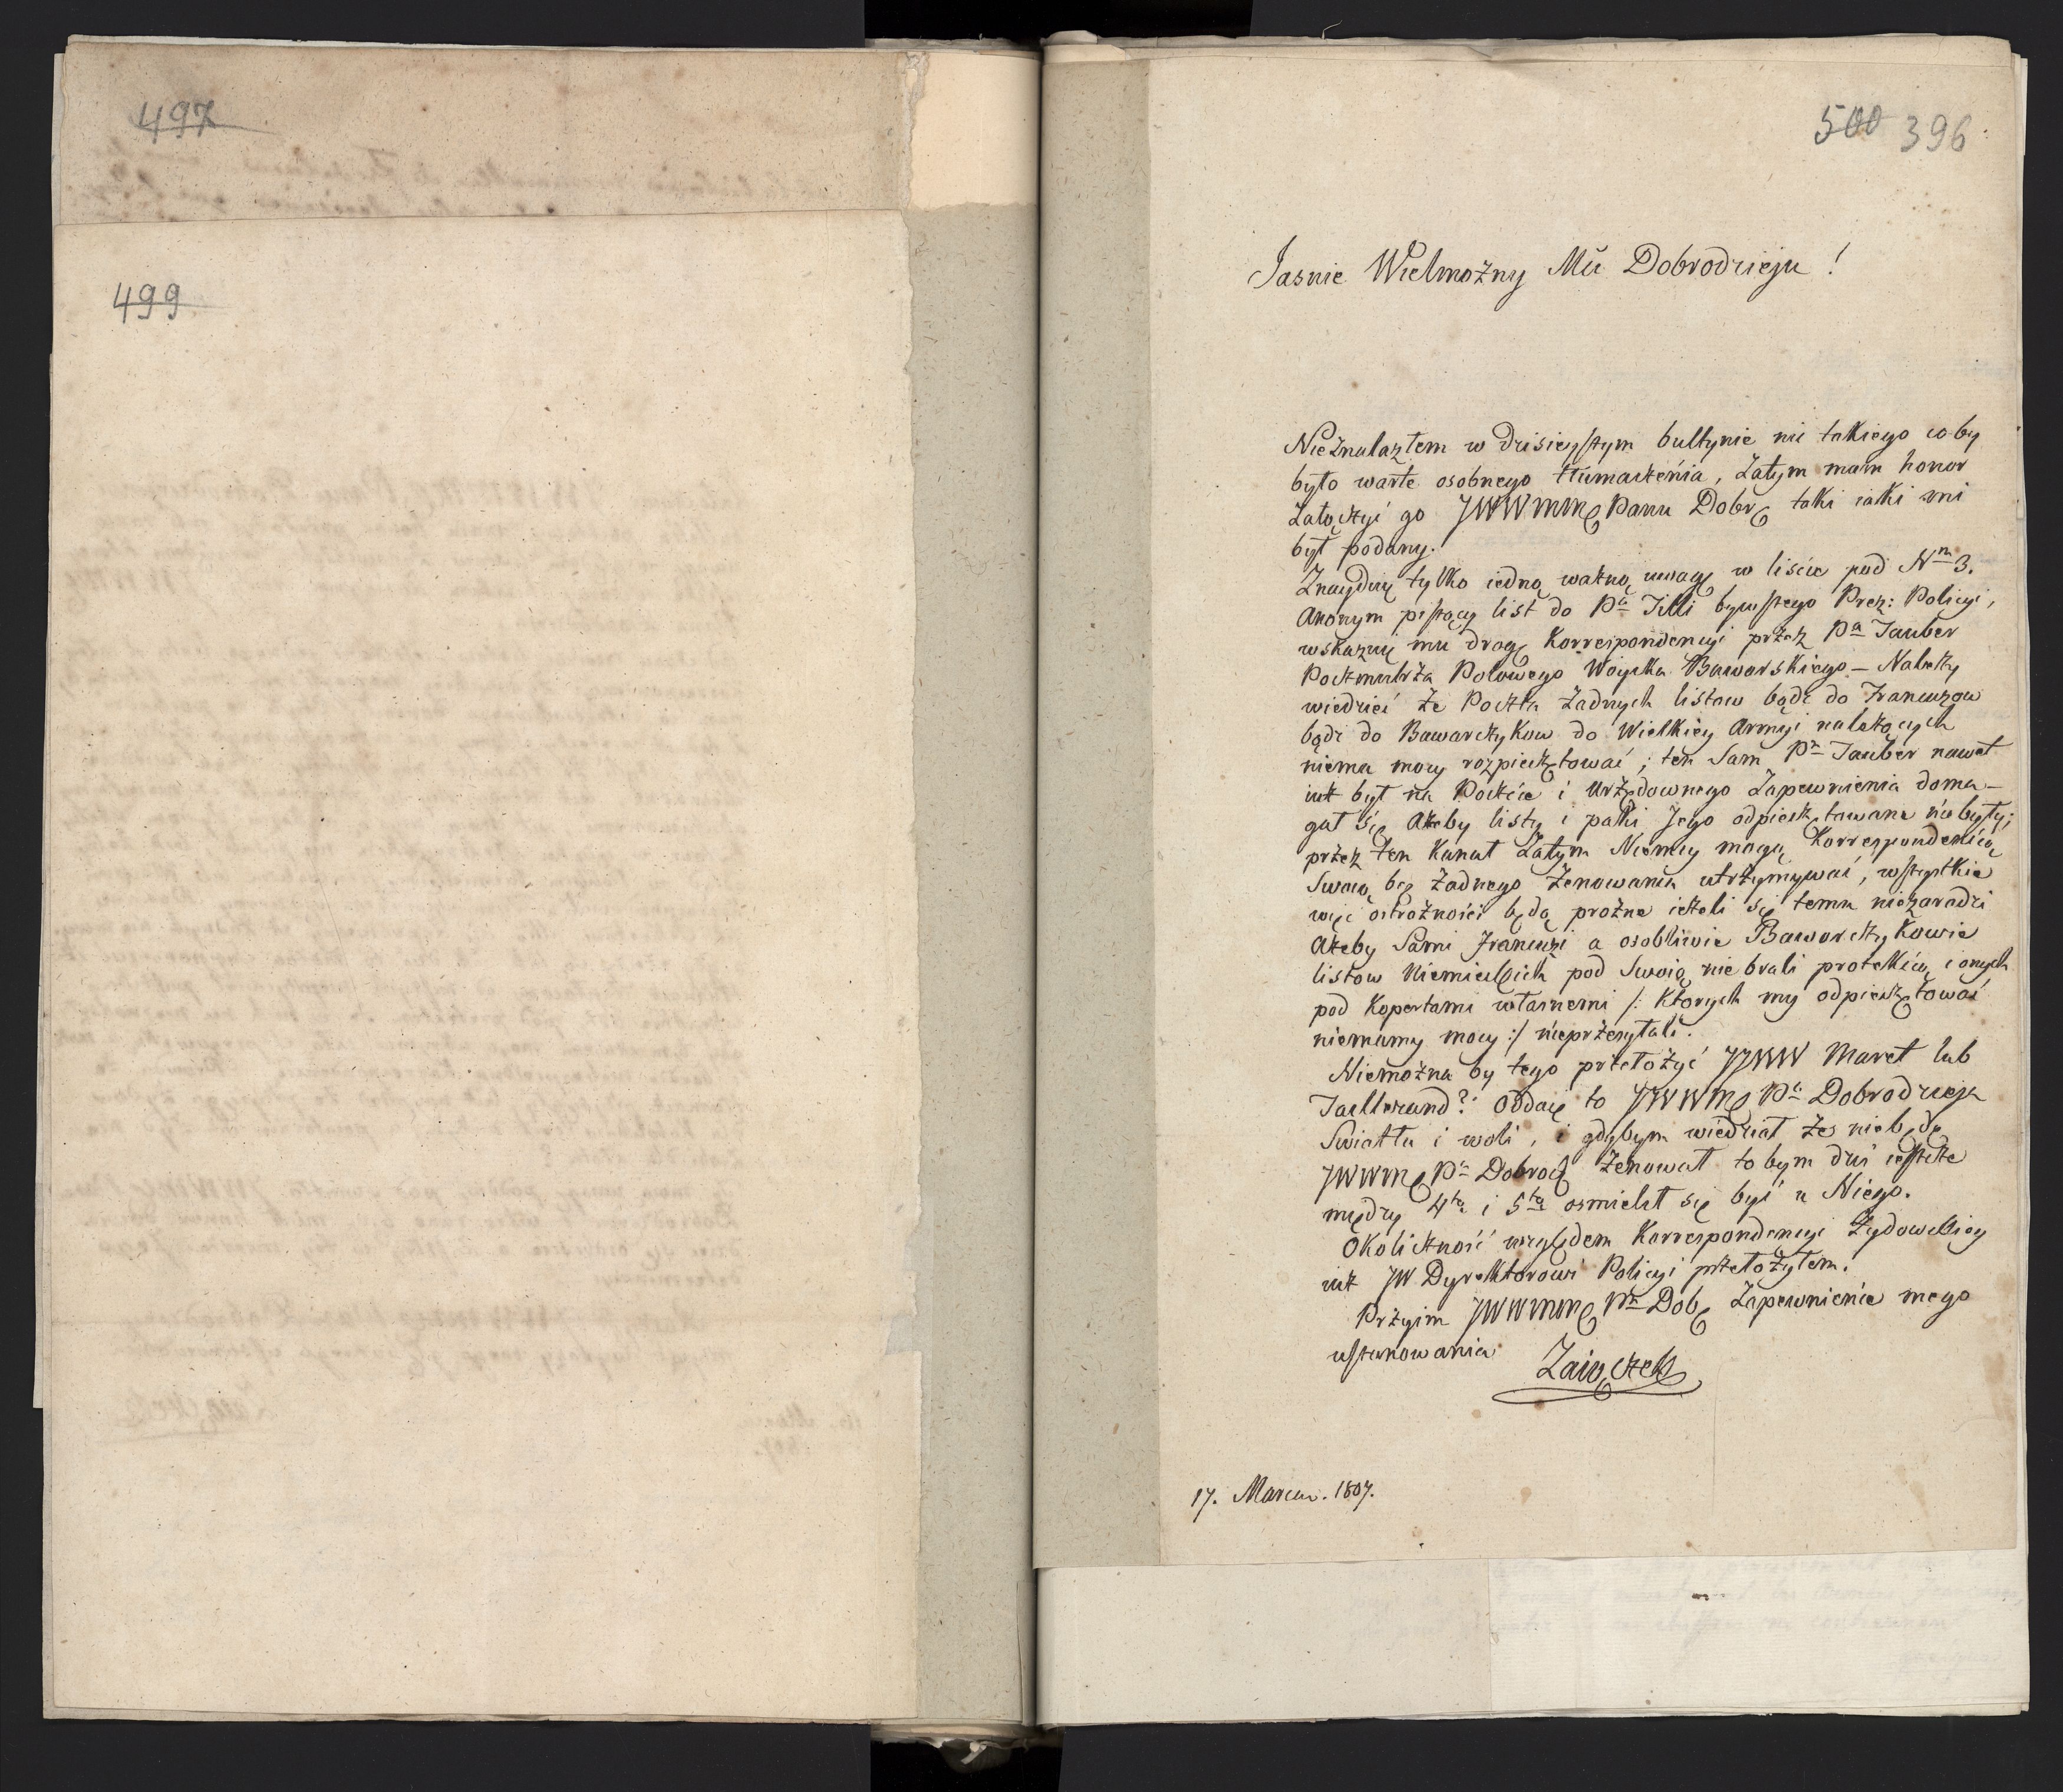 497
499
500 396
Jasnie Wielmożny Mũ Dobrodzieju!
Nieznalazłem w dzisieyszym bultynie nic takiego co by
było warte osobnego tłumaczenia, zatym mam honor
załączyć go JWWMM Panu Dobr taki iaki mi
był podany.
Znayduię tylko iedną ważną uwagę w liście pod Nm 3.
Anonym piszący list do Pa Tilli bywszego Prez: Policyi,
wskazuie mu drogę Korrespondencyi przez Pa Tauber
Poczmatrza Polowego Woyska Bawarskiego – Należy
wiedzieć że Poczta żadnych listow bądz do Francuzow
bądz do Bawarczykow do Wielkiey Armyi należących
niema mocy rozpieczętować; ten Sam Pn Tauber nawet
iuż był na Poczcie i Urzędownego Zapewnienia doma-
gał się Ażeby listy i paki Jego odpieczętowane niebyły;
przez ten Kanał Zatym Niemcy mogą Korrespondencią
Swoią bez żadnego Żenowania utrzymywać, wszystkie
więc ostrożności będą prożne ieżeli się temu niezaradzi
Ażeby Sami Francuzi a osobliwie Bawarczykowie
listow Niemieckich pod Swoią nie brali protekcią i onych
pod Kopertami własnemi /: Ktorych my odpieczętować
niemamy mocy :/ nieprzesyłali.
Niemożna by tego przełożyć JJWW Maret lub
Taillerand? Oddaię to JWWM Pa Dobrodzieja
Swiatłu i woli, i gdybym wiedział że nie będę
JWWM Pa Dobrod żenował to bym dziś ieszcze
między 4tą i 5tą osmielił się być u Niego.
Okoliczność względem Korrespondencyi Żydowskiey
iuż JW Dyrektorowi Policyi przełożyłem.
Przyim JWWMM Pn Dob Zapewnienie mego
uszanowania
Zaiączek
17. Marca. 1807.